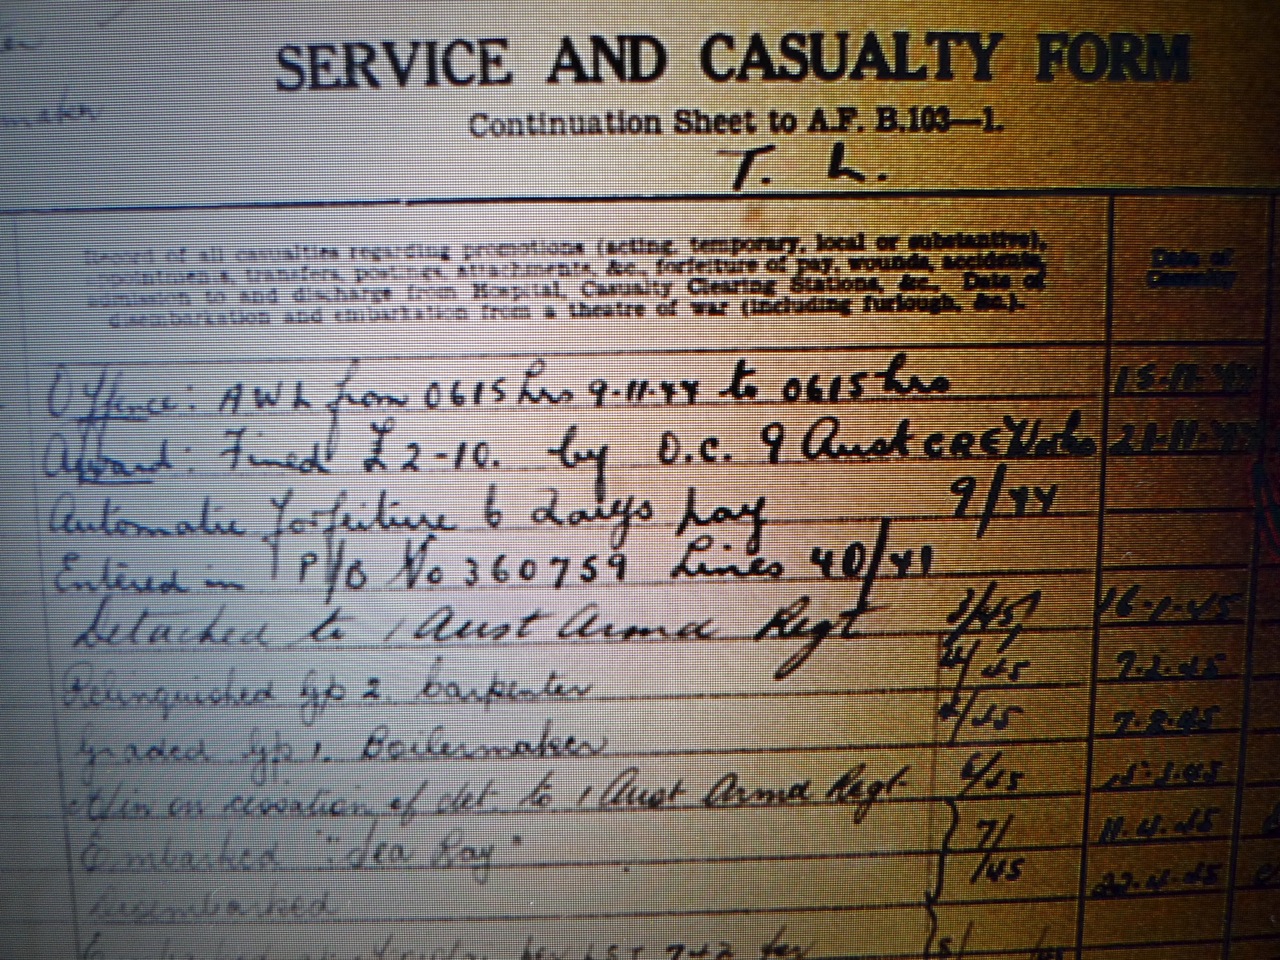 maker
SERVICE AND CASUALTY FORM
Continuation Sheet to A.F. B.103—1.
T. L.
Record of all casualties regarding promotions (acting, temporary, local or substantive),
appointments, transfers, postings, attachments, &c., forfeiture of pay, wounds, accidents,
admission to and discharge from Hospital, Casualty Clearing Stations, &c. Date of
disembarkation and embarkation from a theatre of war (including furlough, &c.).
Date of
Casualty
Offence: AWL from 0615 hrs 9-11-44 to 0615 hrs 15-11-44
Award: Fined £2-10. by O.C. 9 Aust CRE Works 21-11-44
Automatic forfeiture 6 days pay 9/44
Entered in P/B No 360759 Lines 40/41
Detached to 1 Aust Armd Regt 3/45 16-1-45
Relinquished Gp 2. Carpenter 4/45 7.2.45
Graded Gp 1. Boilermaker 4/45 7.2.45
M/in on cessation of det. to 1 Aust Armd Regt 6/45 .3.45
Embarked "Sea Ray" 7/ 11.4.45
Disembarked /45 22.4.45